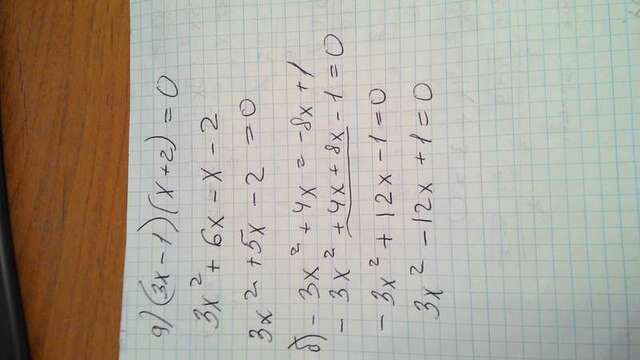 а) (3x-1)(x+2)=0
3x²+6x-x-2
3x²+5x-2=0
б) -3x²+4x=-8x+1
-3x²+4x+8x-1=0
-3x²+12x-1=0
3x²-12x+1=0